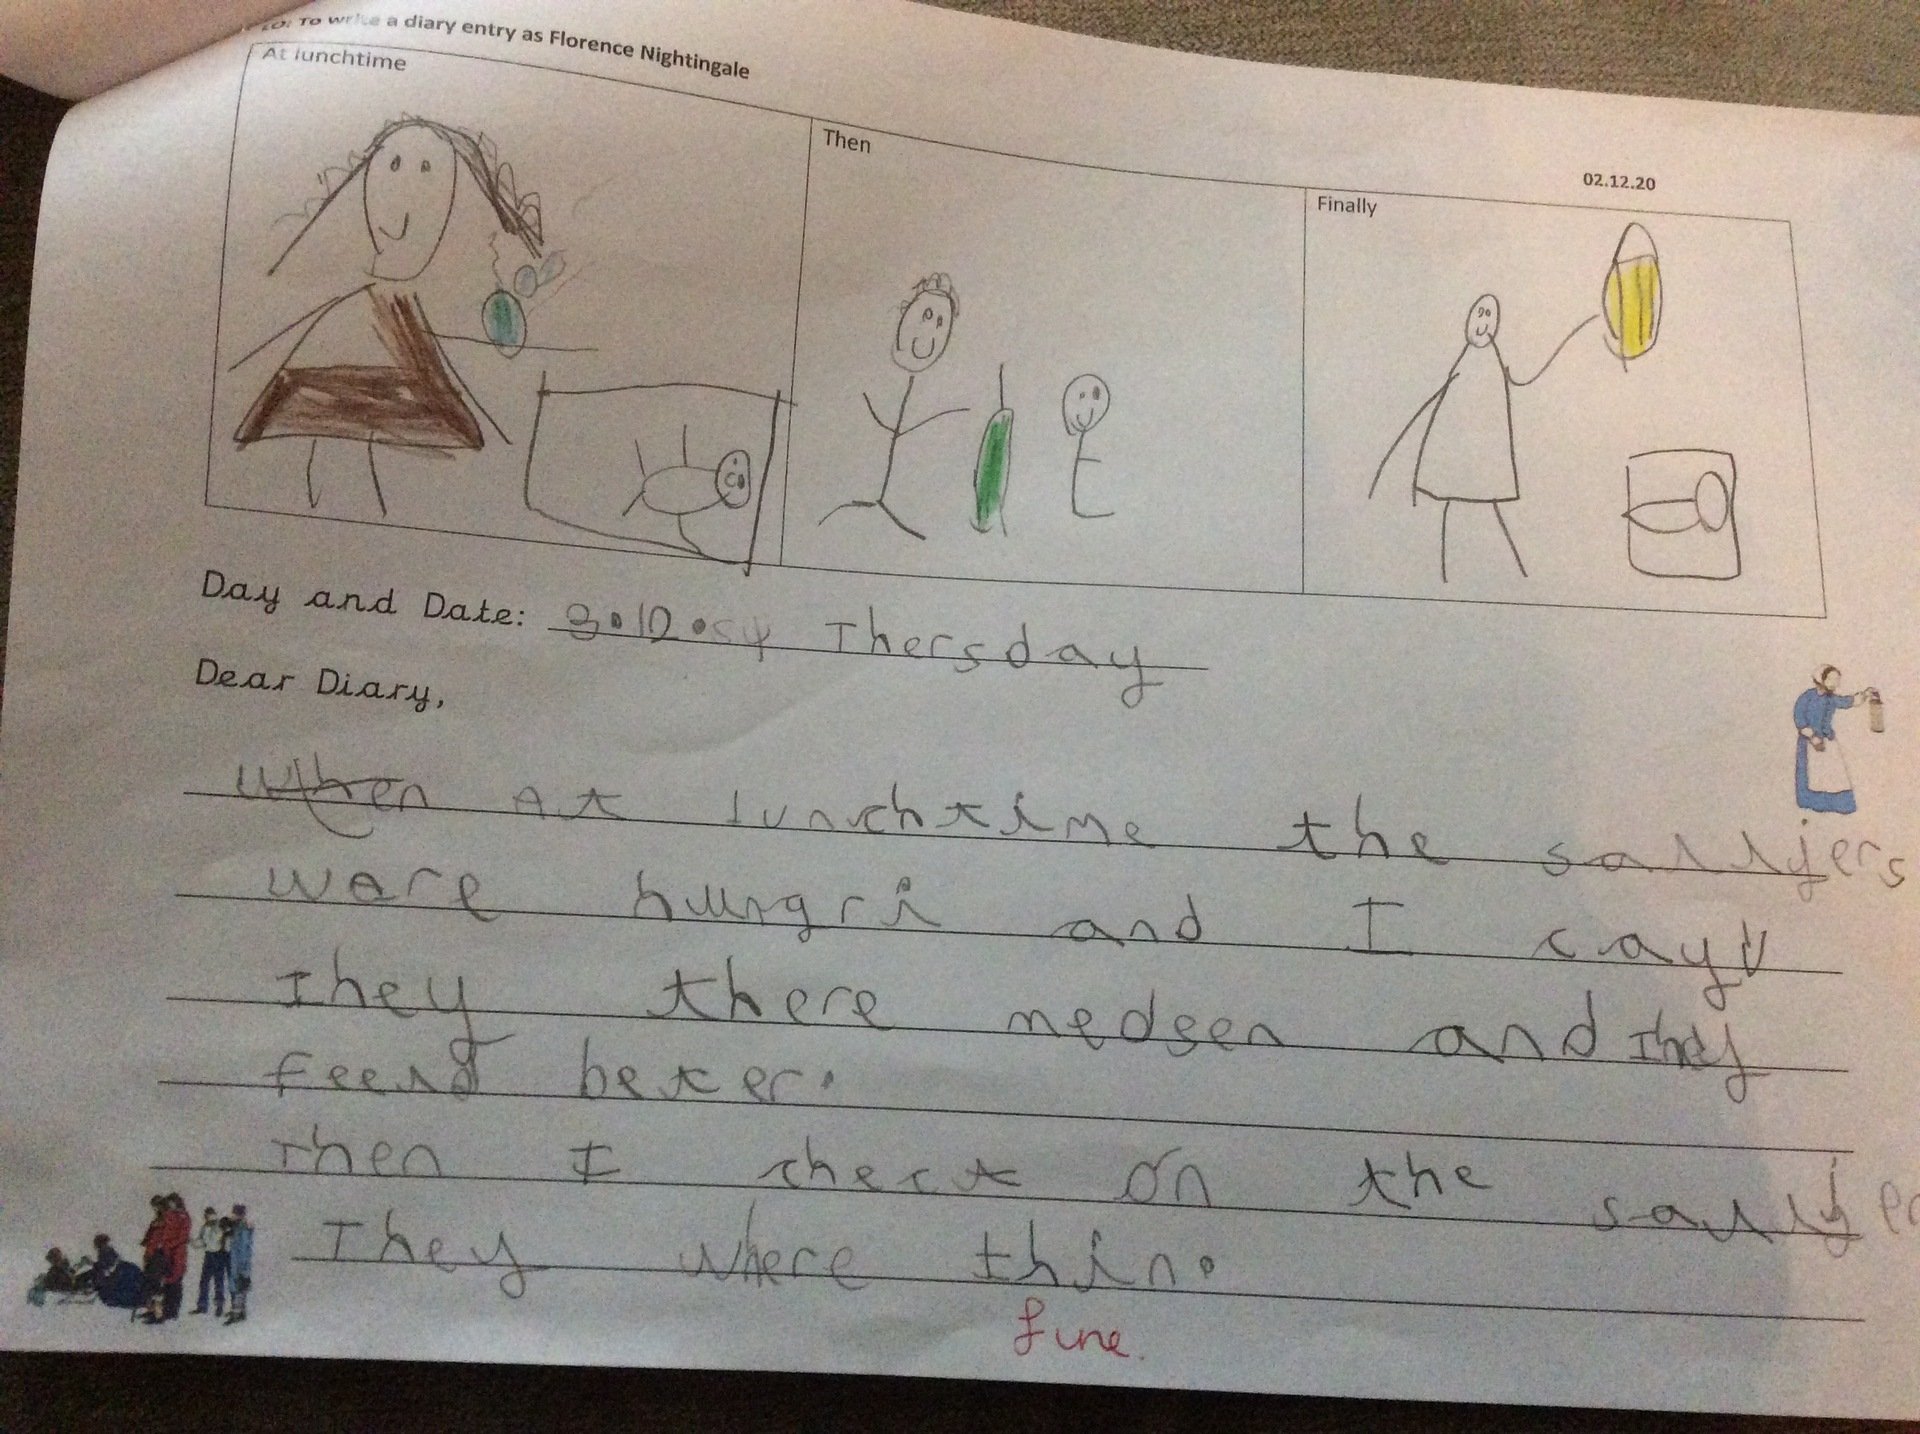 LO: To write a diary entry as Florence Nightingale
02.12.20
At lunchtime
Then
Finally
Day and Date: 3.12.54 Thersday
Dear Diary,
When At lunchtime the sallyers
were hungri and I
They there medsen and they
feeld beter.
Then I chect on the sallyer
They where thin.
fine.